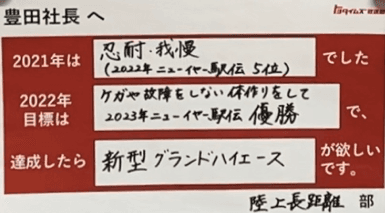 豊田社長 へ
トヨタイムズ放送部
2021年は
忍耐・我慢
(2022年 ニューイヤー駅伝 5位)
でした
2022年
目標は
ケガや故障をしない体作りをして
2023年 ニューイヤー駅伝 優勝
で、
達成したら
新型 グランドハイエース
が欲しい
です。
陸上長距離 部